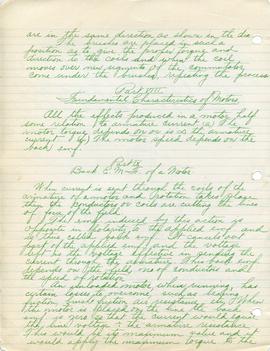 are in the same direction as shown in the dia.
The brushes are placed in such a
position as to give the proper torque and
direction to the coils and when the coil
moves over segments of the commutator
come under the brushes, repeating the process
Part VIII
Fundamental Characteristics of Motors
All the effects produced in a motor, half
some relation to armature current. (a) The
motor torque depends on or is the armature
current. (b) The motor speed depends on the
back emf
Part IX
Back E.M.F. of a Motor
When current is sent through the coils of the
armature of a motor and rotation takes place
then the conductors or coils are cutting lines
of force of the field.
The emf induced by this action is
opposite in polarity to the applied emf and
is thus called back emf. It cancels out
part of the applied emf and the voltage
left is the voltage effective in sending the
current through the armature. This back emf
depends on the field, no. of conductors and
the speed of rotation.
An unloaded motor when running, has
certain losses to overcome such as bearing
friction, brush friction air resistance etc. When
the motor is placed on load the back
emf is zero so that the current would equal
the line voltage ÷ the armature resistance
This would be its maximum value and it
would apply the maximum torque to the